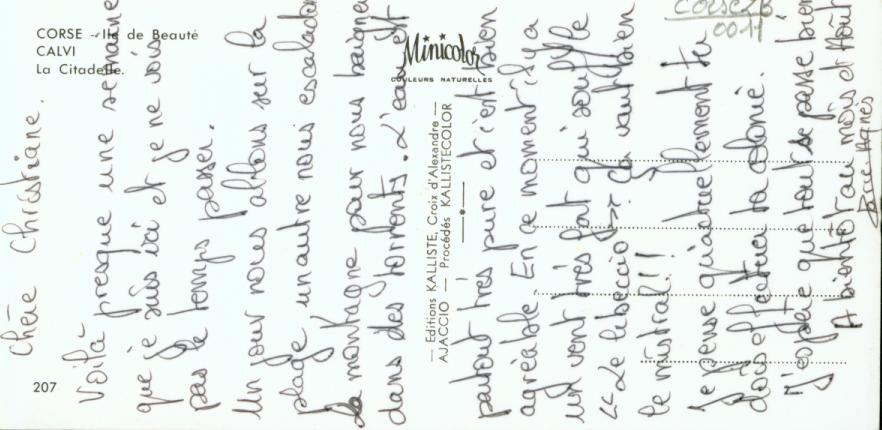 CORSE - Ile de Beauté
CALVI
La Citadelle.
207
Minicolor
COULEURS NATURELLES
— Editions KALLISTE, Croix d'Alexandre —
AJACCIO — Procédés KALLISTECOLOR
CORSE 2B
0011
Chère Christiane.
Voilà presque une semaine
que je suis ici et je ne vois
pas le temps passer.
Un jour nous allons sur la
plage un autre nous escaladons
la montagne pour nous baigner
dans des torrents. L'eau est
partout très pure et c'est bien
agréable. En ce moment il y a
un vent très fort qui souffle
<< Le libeccio >> ça vaut bien
le mistral!!
Je pense qu'actuellement tu
dois effectuer ta colonie.
J'espère que tout se passe bien
A bientôt au mois d'Août
Bises Agnès